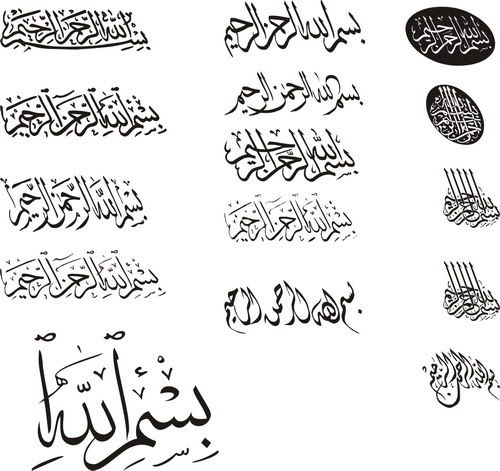 بسم الله الرحمن الرحيم
بسم الله الرحمن الرحيم
بسم الله الرحمن الرحيم
بسم الله الرحمن الرحيم
بِسْمِ اللَّهِ
بسم الله الرحمن الرحيم
بسم الله الرحمن الرحيم
بسم الله الرحمن الرحيم
بسم الله الرحمن الرحيم
بسم الله الرحمن الرحيم
بسم الله الرحمن الرحيم
بسم الله الرحمن الرحيم
بسم الله الرحمن الرحيم
بسم الله الرحمن الرحيم
بسم الله الرحمن الرحيم